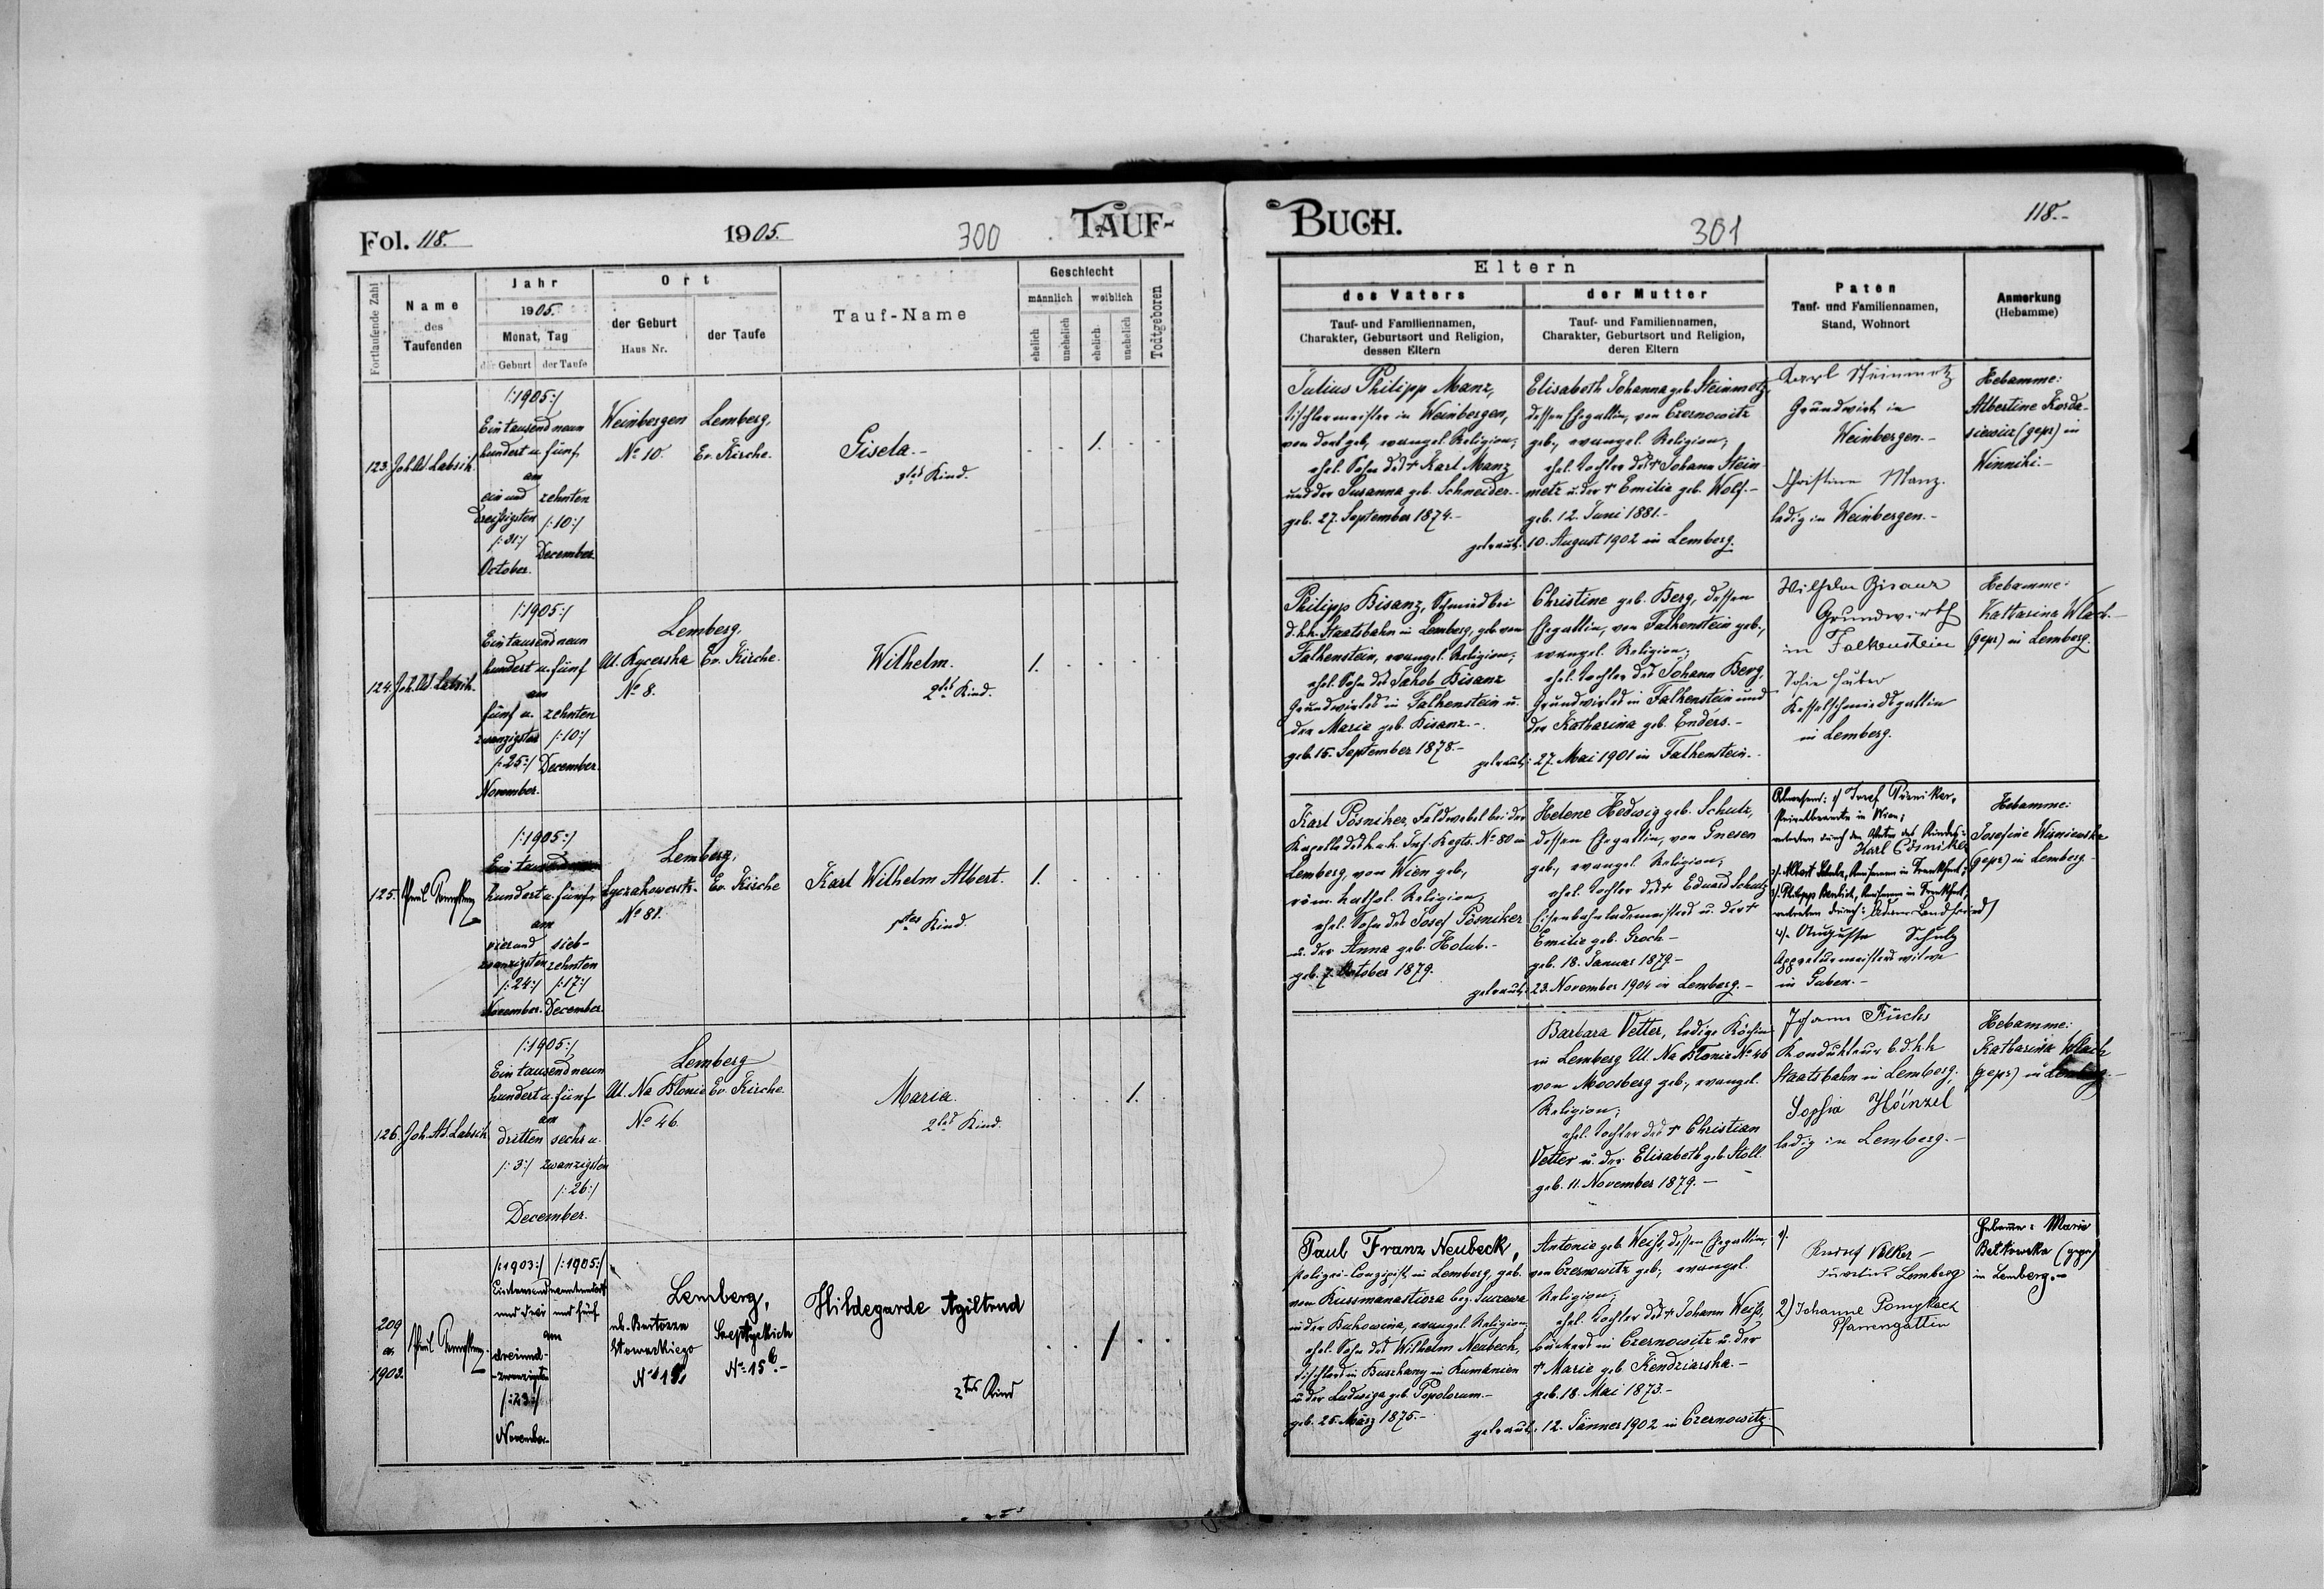 Fol. 118.
1905.
300
TAUF-
Fortlaufende Zahl
Name
des
Taufenden
Jahr
1905.
Monat, Tag
der Geburt
der Taufe
Ort
der Geburt
Haus Nr.
der Taufe
Tauf-Name
Geschlecht
männlich
weiblich
ehelich
unehelich
ehelich
unehelich
Todtgeboren
123.
Joh. Ad. Labsik.
/:1905:/
Ein tausend neun
hundert u. fünf
am
ein und
dreißigsten
/:31:/
October.
zehnten
/:10:/
December.
Weinbergen
No 10.
Lemberg,
Ev. Kirche.
Gisela.-
3tes Kind.
1.
124.
Joh. Ad. Labsik.
/:1905:/
Ein tausend neun
hundert u. fünf
am
fünf u.
zwanzigsten
/:25:/
November.
zehnten
/:10:/
December.
Lemberg,
Ul. Kycerska
No 8.
Ev. Kirche.
Wilhelm.
2tes Kind.
1.
125.
/:1905:/
Ein tausend
hundert u. fünf
am
vier und
zwanzigsten
/:24:/
November.
sieb-
zehnten
/:17:/
December.
Lemberg,
Lyczakowerstr.
No 81.
Ev. Kirche
Karl Wilhelm Albert.
1tes Kind.
1.
126.
Joh. Ad. Labsik
/:1905:/
Ein tausend neun
hundert u. fünf
am
dritten
/:3:/
sechs u.
zwanzigsten
/:26:/
December.
Lemberg
Ul. Na Blonie
No 46.
Ev. Kirche.
Maria.
2tes Kind.
1.
209
1903.
/:1903:/
/:1905:/
und drei
und fünf
am
dreiund-
zwanzigsten
/:23:/
November
Lemberg,
Hildegarde Agiltrud
2tes Kind
1
BUCH.
301
118.-
Eltern
des Vaters
Tauf- und Familiennamen,
Charakter, Geburtsort und Religion,
dessen Eltern
der Mutter
Tauf- und Familiennamen,
Charakter, Geburtsort und Religion,
deren Eltern
Paten
Tauf- und Familiennamen,
Stand, Wohnort
Anmerkung
(Hebamme)
Julius Philipp Manz,
Tischlermeister in Weinbergen,
von dort geb., evangel. Religion;
ehel. Sohn des † Karl Manz
und der Susanna geb. Schneider.-
geb. 27. September 1874.-
Elisabeth Johanna geb. Steinmetz,
dessen Ehegattin, von Czernowitz
geb., evangel. Religion;
ehel. Tochter des † Johann Stein-
metz u. der † Emilie geb. Wolf.-
geb. 12. Juni 1881.-
getraut: 10. August 1902 in Lemberg.
Karl Steinmetz
Grundwirt in
Weinbergen.-
Christine Manz.
ledig in Weinbergen.-
Hebamme:
Albertine Korda-
siewicz (gepr) in
Winniki.-
Philipp Bisanz, Schmied bei
d. k.k. Staatsbahn in Lemberg, geb. von
Falkenstein, evangel. Religion;
ehel. Sohn des Jakob Bisanz
Grundwirtes in Falkenstein u.
der Marie geb. Bisanz.-
geb. 15. September 1878.-
Christine geb. Berg, dessen
Ehegattin, von Falkenstein geb.,
evangel. Religion;
ehel. Tochter des Johann Berg,
Grundwirtes in Falkenstein und
der Katharina geb. Enders.-
getraut: 27. Mai 1901 in Falkenstein.-
Wilhelm Bisanz
Grundwirth
in Falkenstein
Sofie Huber
Kesselschmiedsgattin
in Lemberg.
Hebamme:
Katharina Wlach.-
(gepr) in Lemberg.
Karl Pösniker, Feldwebel bei der
Kapelle des k.u.k. Inf. Regts. No 80 in
Lemberg, von Wien geb.,
röm. kathol. Religion;
ehel. Sohn des Josef Pösniker
u. der Anna geb. Holub.-
geb. 7. October 1879.
Helene Hedwig geb. Schulz,
dessen Ehegattin, von Gnesen
geb., evangel. Religion;
ehel. Tochter des † Eduard Schulz
Eisenbahnlademeisters u. der †
Emilie geb. Groch-
geb. 18. Januar 1879.-
getraut: 23. November 1904 in Lemberg.-
Josef Pösniker,
Privatbeamte in Wien;
vertreten durch den Vater des Kindes:
Karl Pösniker
Albert Schulz, Kaufmann in Frankfurt,
vertreten durch: Adam Landfried)
4/. Auguste Schulz
Appreturmeisterswitwe
in Guben.-
Hebamme:
Josefine Wisniewska
(gepr) in Lemberg.
Barbara Vetter, ledige Köchin
in Lemberg Ul. Na Blonie No 46
von Moosberg geb., evangel.
Religion;
ehel. Tochter des † Christian
Vetter u. der Elisabeth geb. Stoll.
geb. 11. November 1879.-
Johann Fuchs
Kondukteur b. d. k.k
Staatsbahn in Lemberg;
Sophia Heinzel
ledig in Lemberg.-
Hebamme:
Katharina Wlach
(gepr) in Lemberg.-
Paul Franz Neubeck,
Polizei-Conzipist in Lemberg, geb.
von Kussmanastiora bez. Suczawa
in der Bukowina, evangel. Religion;
ehel. Sohn des Wilhelm Neubeck,
Tischlers in in Rumänien
u. der Ludwiga geb. Popolorum.-
geb. 25. März 1875.-
Antonie geb. Weiß, dessen Ehegattin,
von Czernowitz geb., evangel.
Religion;
ehel. Tochter des † Johann Weiß,
Bäckers in Czernowitz u. der
† Marie geb. Kendziarska.-
geb. 18. Mai 1873.-
getraut: 12. Jänner 1902 in Czernowitz.
1)
Rudolf Völker-
Lemberg
2) Johanne Pomykacz
Pfarrersgattin
Hebamme: Marie
(gepr)
in Lemberg.-